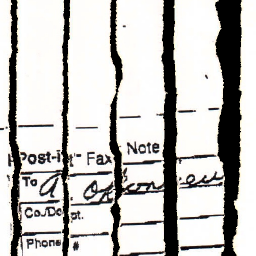 Post-it™ Fax Note
To A.
Co./Dept.
Phone #